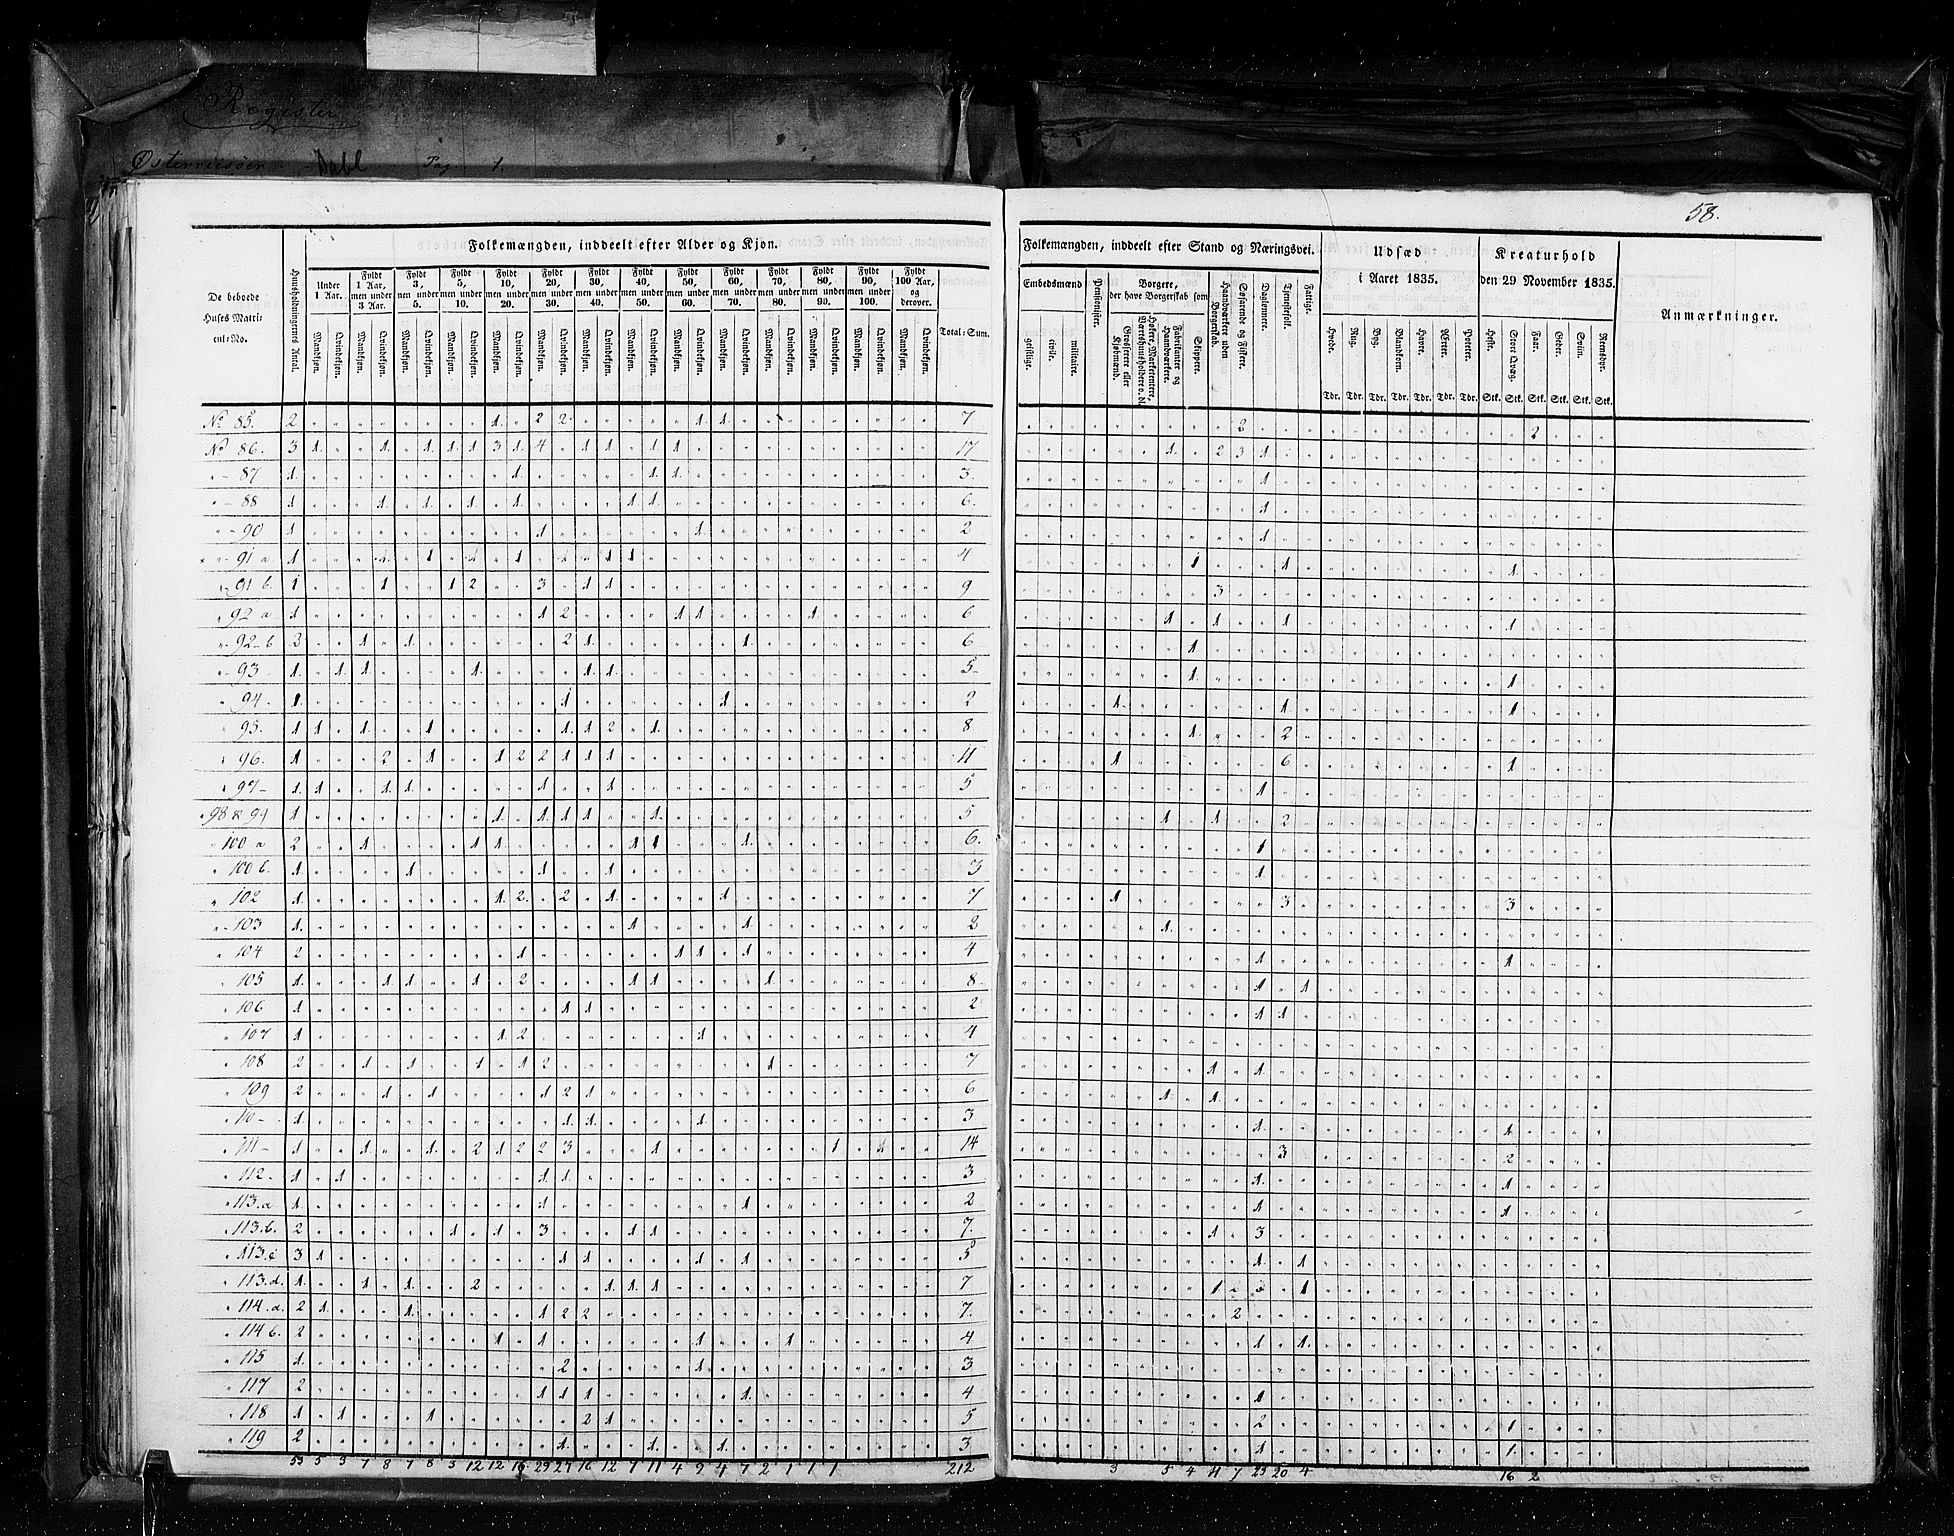 Register
Østerriisøer Dahl Pag 1.
58.
Folkemængden, inddeelt efter Alder og Kjøn.
De beboede Huses Matricul-No.
Huusholdningernes Antal.
Under 1 Aar.
Fyldt 1 Aar, men under 3 Aar.
Fyldt 3, men under 5.
Fyldt 5, men under 10.
Fyldt 10, men under 20.
Fyldt 20, men under 30.
Fyldt 30, men under 40.
Fyldt 40, men under 50.
Fyldt 50, men under 60.
Fyldt 60, men under 70.
Fyldt 70, men under 80.
Fyldt 80, men under 90.
Fyldt 90, men under 100.
Fyldt 100 Aar, og derover.
Total-Sum.
Mandkjøn. Qvindekjøn.
Folkemængden, inddeelt efter Stand og Næringsvei.
Embedsmænd
geistlige. civile. militaire.
Pensionister.
Borgere, der have Borgerskab som
Grosserere eller Kjøbmænd.
Høkere, Marketentere, Værtshuusholdere o. dl.
Fabrikanter og Haandværkere.
Skippere.
Haandværkere uden Borgerskab.
Søfarende og Fiskere.
Daglønnere.
Tjenestefolk.
Fattige.
Udsæd i Aaret 1835.
Hvede. Rug. Byg. Blandkorn. Havre. Ærter. Poteter.
Tdr. Tdr. Tdr. Tdr. Tdr. Tdr. Tdr.
Kreaturhold den 29 November 1835.
Heste. Stort Qvæg. Faar. Gieder. Sviin. Reensdyr.
Stk. Stk. Stk. Stk. Stk. Stk.
Anmærkninger.
No 85. 2 1. 2 2. 1. 1. 7 2 2
No 86. 3 1. 1. 1 1 1 3 1. 4 1 1 1 1 17 1. 2 3 1
" - 87 1. 1. 1 1 3. 1
" - 88 1 1 1 1 1 1 1 6. 1
" - 90 1 1 1. 2 1
" - 91 a 1 4 1 1 1
" 91 b. 1 1 1 2 3 1 1 9 3
" 92 a 1 1 2 1 1 1 6 1 1 1 1
" 92-b 3 1 1 2 1 1 6 1
" - 93 1. 1 1 1. 1 1 5- 1 1
" 94. 1 1 1 2 1. 1 1
" 95. 1 1 1 1 1. 1 2 1. 8 1. 2
" 96. 1 2 1 1 2 2 1 1 1 11 1 6 1
" 97- 1. 1 1 1 1 1 5 1
" 98 & 99 1 1. 1 1 1 1. 5 1 1 2
" 100 a 2 1 1 1 1 1 1. 6. 1
" 100 b. 1. 1 1 1. 3 1
" 102 1 1 2. 2 1. 1 7 1 3 3
" - 103 1. 1 1 2 1.
" 104 2 1 1 1 1 4 1 1
" 105 1. 1 1 1 2 1 1 1 8. 1 1
" 106 1 1 1 2 1 1
" 107 1 1 2 1 4
" 108 2 1 1 1 1 2 1 7 1 1
" 109 2 1 1 1 2 1 6 1 1.
" 10- 1. 1 1. 1. 3. 1 1
" 111- 1 1 1. 2 1 2 2 3 1 1 1 14 3 2
" 112. 1 1 1 1. 3 1. 1
" 113.a 1. 1 1 2 1 1
" 113.b. 2 1 1 3 1 1 7. 1 3
" 113.c 3 1 1 1 1 1 5 1 1
" 113.d. 1. 1 1. 2 1 1 1 7 1 1
" 114.a. 2 1. 1. 1 2 2 7. 2
" 114 b. 2 1 1 1 1 4 1 1.
" 115 1. 2 1 3
" 117 2 1 1 1 1. 4 1
" 118 1 1 1 2 1 5 2 1
" 119 2 1. 1. 1. 3 1 1
53 5 3 7 8 7 8 5 12 12 23 27 16 12 9 11 4 9 4 7 2 1 1 1 212 3 5 4 11 7 23 20 4 16 2